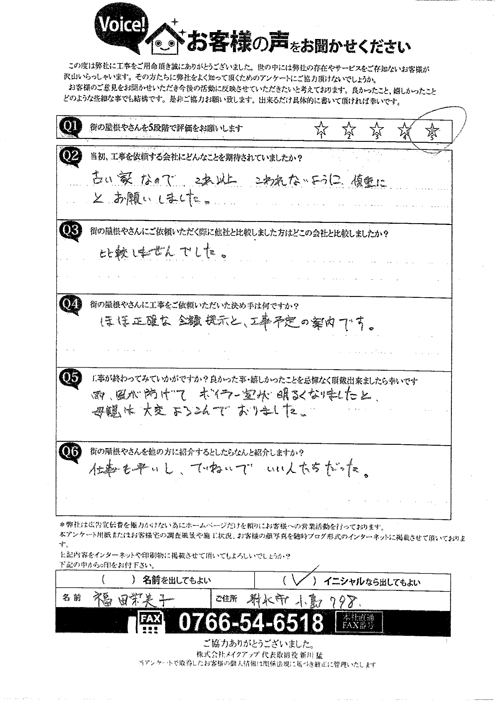 Voice!
お客様の声をお聞かせください
この度は弊社に工事をご用命頂き誠にありがとうございます。世の中には弊社の存在やサービスをご存知ないお客様が
沢山いらっしゃいます。その方たちに弊社をよく知って頂くためのアンケートにご協力頂けないでしょうか。
お客様のご意見をお聞かせいただき今後の活動に反映させていただきたいと考えております。良かったこと、嬉しかったこと
どのような些細な事でも結構です。是非ご協力お願い致します。出来るだけ具体的に書いて頂ければ幸いです。
Q1 街の屋根やさんを5段階で評価をお願いします
1 2 3 4 5
Q2 当初、工事を依頼する会社にどんなことを期待されていましたか?
古い家なので これ以上 こわれないように 慎重に
とお願いしました。
Q3 街の屋根やさんにご依頼いただく際に他社と比較しました方はどこの会社と比較しましたか?
比較しませんでした。
Q4 街の屋根やさんに工事をご依頼いただいた決め手は何ですか?
ほぼ正確な金額提示と、工事予定の案内です。
Q5 工事が終わってみていかがですか?良かった事・嬉しかったことを忌憚なく頂戴出来ましたら幸いです
雨、風が防げて ボイラー室が明るくなりましたと、
母親は大変よろこんでおりました。
Q6 街の屋根やさんを他の方に紹介するとしたらなんと紹介しますか?
仕事も早いし、ていねいで いい人たちだった。
*弊社は広告宣伝費を極力かけない為にホームページだけを頼りにお客様への営業活動を行っております。
本アンケート用紙またはお客様宅の調査風景や施工状況、お客様の顔写真を随時ブログ形式のインターネットに掲載させて頂いております。
上記内容をインターネットや印刷物に掲載させて頂いてもよろしいでしょうか?
下記の中から○印をお付け下さい。
( ) 名前を出してもよい
(✓) イニシャルなら出してもよい
名前 福田 ご住所 射水市 小島798.
FAX 0766-54-6518 本社直通 FAX番号
ご協力ありがとうございました。
株式会社メイクアップ 代表取締役 新川 猛
当アンケートで取得したお客様の個人情報は関係法規に基づき厳正に管理いたします